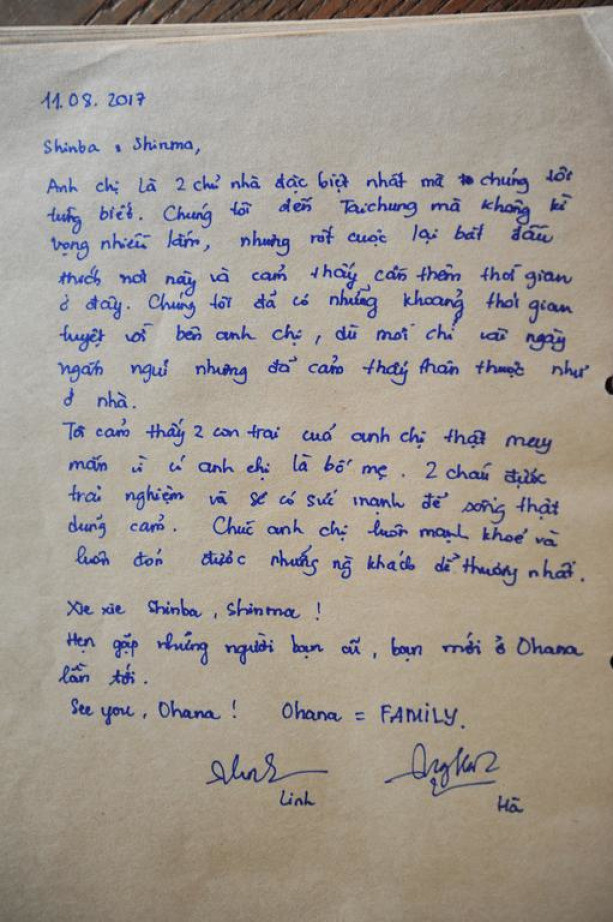 11.08.2017
Shinba, Shinma,
Anh chị là 2 chủ nhà đặc biệt nhất mà chúng tôi
từng biết. Chúng tôi đến Taichung mà không kì
vọng nhiều lắm, nhưng rốt cuộc lại bắt đầu
thích nơi này và cảm thấy cần thêm thời gian
ở đây. Chúng tôi đã có những khoảng thời gian
tuyệt vời bên anh chị, dù mới chỉ vài ngày
ngắn ngủi nhưng đã cảm thấy thân thuộc như
ở nhà.
Tôi cảm thấy 2 con trai của anh chị thật may
mắn vì có anh chị là bố mẹ. 2 cháu được
trải nghiệm và sẽ có sức mạnh để sống thật
dũng cảm. Chúc anh chị luôn mạnh khoẻ và
luôn đón được những ng khách dễ thương nhất.
Xie xie Shinba, Shinma!
Hẹn gặp những người bạn cũ, bạn mới ở Ohana
lần tới.
See you, Ohana! Ohana = FAMiLY.
Linh Hà